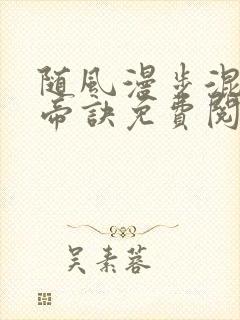 随风漫步混
帝诀免费阅
吴素蓉